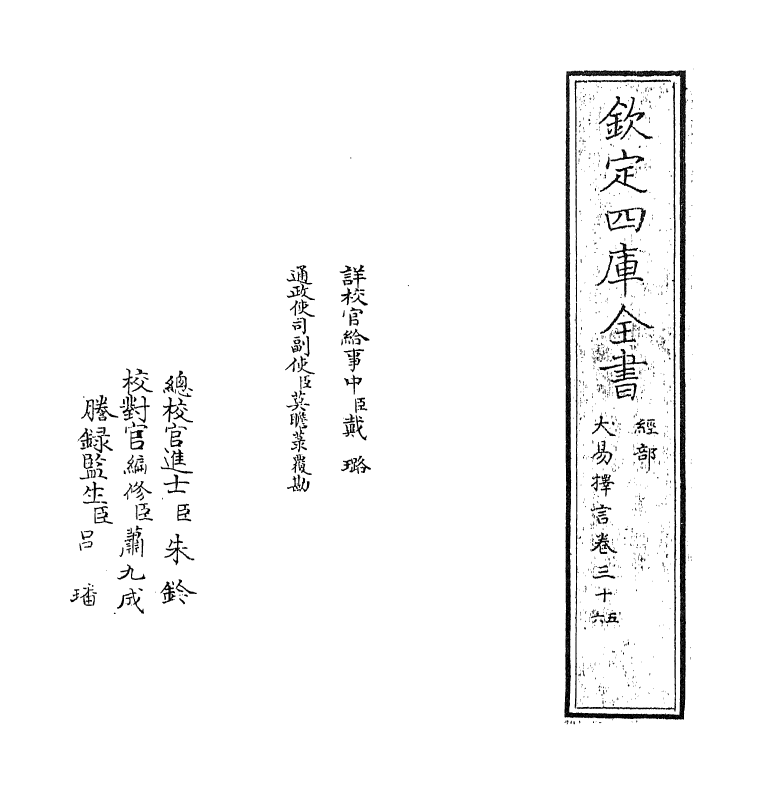 欽定四庫全書
經部
大易擇言卷三十五
六
詳校官給事中臣戴璐
通政使司副使臣莫瞻菉覆勘
總校官進士臣朱鈐
校對官編修臣蕭九成
謄録監生臣呂璠